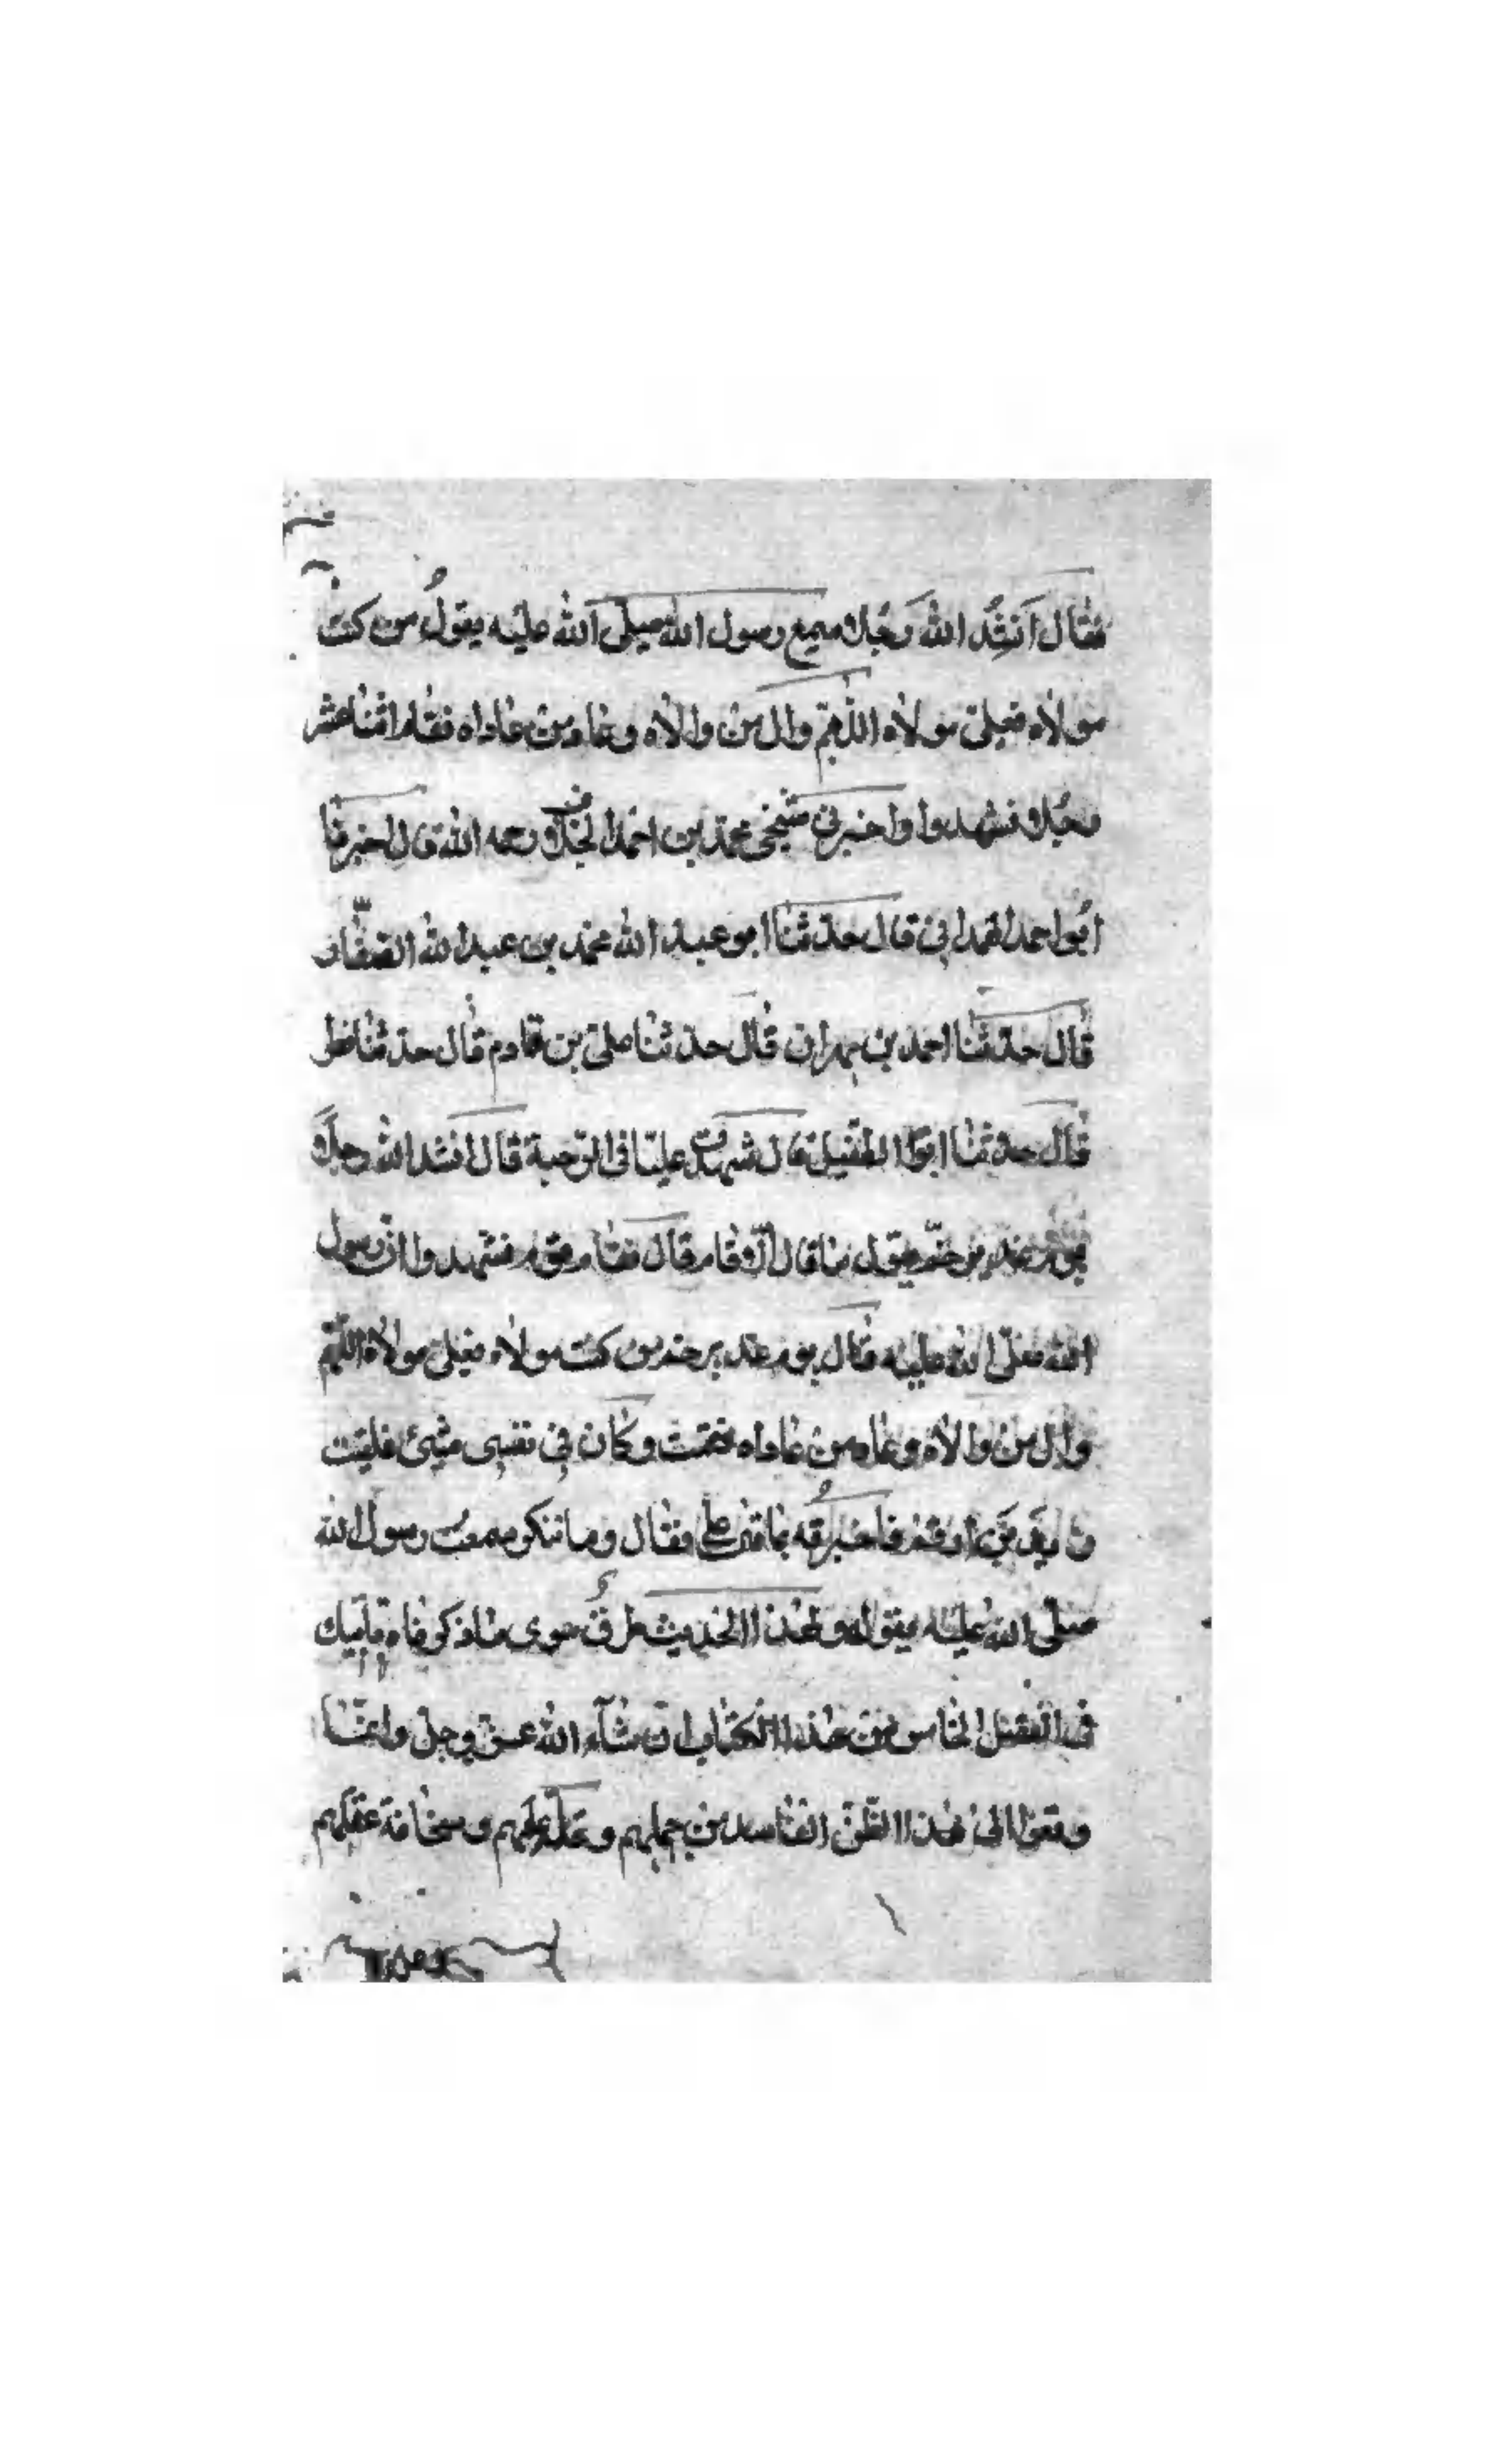 فقال اَنشُد الله رَجُلا سمع رسول الله صلى الله عليه يقولُ من كنت
مولاه فعلىّ مولاه اللّهمّ وال من والاه وعاد من عاداه فقام اثنا عشر
رجُلا فشهدوا واخبرنى شيخى محمّد بن احمد رحمه الله قال اخبرنا
ابُو احمد الهمدانى قال حدّثنا ابو عبد الله محمّد بن عبد الله الصّفّار
قال حدّثنا احمد بن مهران قال حدّثنا علىّ بن قادم قال حدّثنا فطر
قال حدّثنا ابو الطّفيل قال شهدت عليّا فى الرّحبة قال انشد الله رجلا
يقول ما قال الّا قام قال فقام قوم فشهدوا انّ رسول
الله صلّى الله عليه قال يوم غدير خم من كنت مولاه فعلىّ مولاه اللّهمّ
وال من والاه وعاد من عاداه فقمت وكان فى نفسى شيئ فلقيت
زيد بن ارقم فاخبرته بما قال علىّ فقال وما تنكر سمعت رسول الله
صلّى الله عليه يقوله ولهذا الحديث طرقٌ سوى ما ذكرناه تأتيك
فى الفصل الخامس من هذا الكتاب ان شآء الله عزّ وجلّ وانّما
وقعوا الى هذا الظّنّ الفاسد من جهلهم وسخافة عقلهم